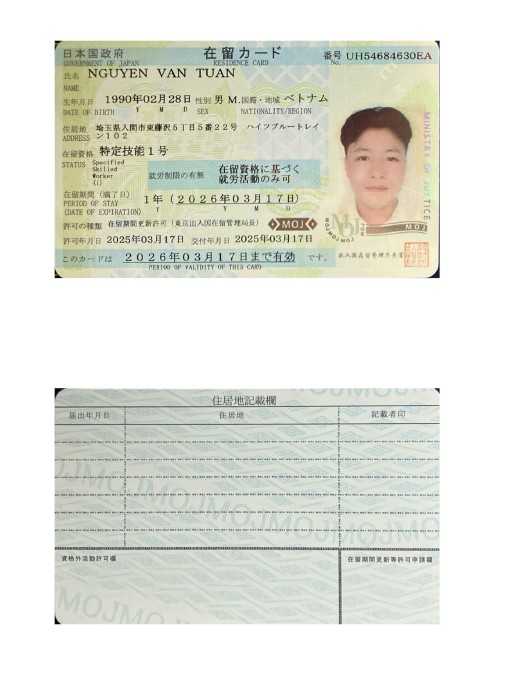 日本国政府 在留カード 番号 UH54684630EA
GOVERNMENT OF JAPAN RESIDENCE CARD No.
氏名 NGUYEN VAN TUAN
NAME
生年月日 1990年02月28日 性別 男 M. 国籍・地域 ベトナム
DATE OF BIRTH Y M D SEX NATIONALITY/REGION
住居地 埼玉県入間市東藤沢5丁目5番22号 ハイツブルートレイ
ADDRESS ン102
在留資格 特定技能1号
STATUS Specified Skilled Worker (i)
就労制限の有無 在留資格に基づく
就労活動のみ可
在留期間(満了日) 1年(2026年03月17日)
PERIOD OF STAY Y M D
(DATE OF EXPIRATION)
許可の種類 在留期間更新許可(東京出入国在留管理局長)
MOJ
許可年月日 2025年03月17日 交付年月日 2025年03月17日
このカードは 2026年03月17日まで有効 です。
PERIOD OF VALIDITY OF THIS CARD
MINISTRY OF JUSTICE
MOJ
住居地記載欄
届出年月日 住居地 記載者印
資格外活動許可欄 在留期間更新等許可申請欄
MOJMOJMOJ